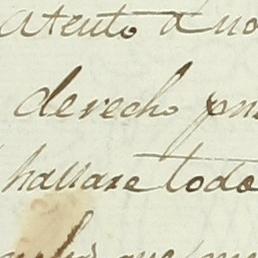 atento a no
derecho pu
hallare todo
que